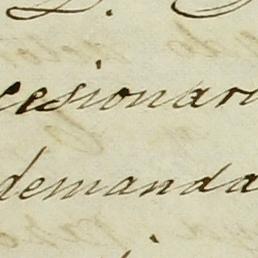 cesionari
demanda